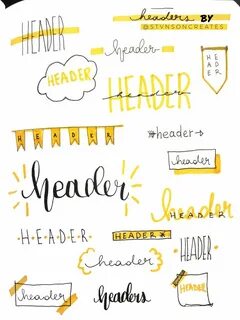 HEADER
headers BY
@STVNSONCREATES
header
HEADER
HEADER
header
HEADER
HEADER
#header→
header
header
header
HEADER
H-E-A-D-E-R
HEADER*
HEADER
header
header
headers
HEADER